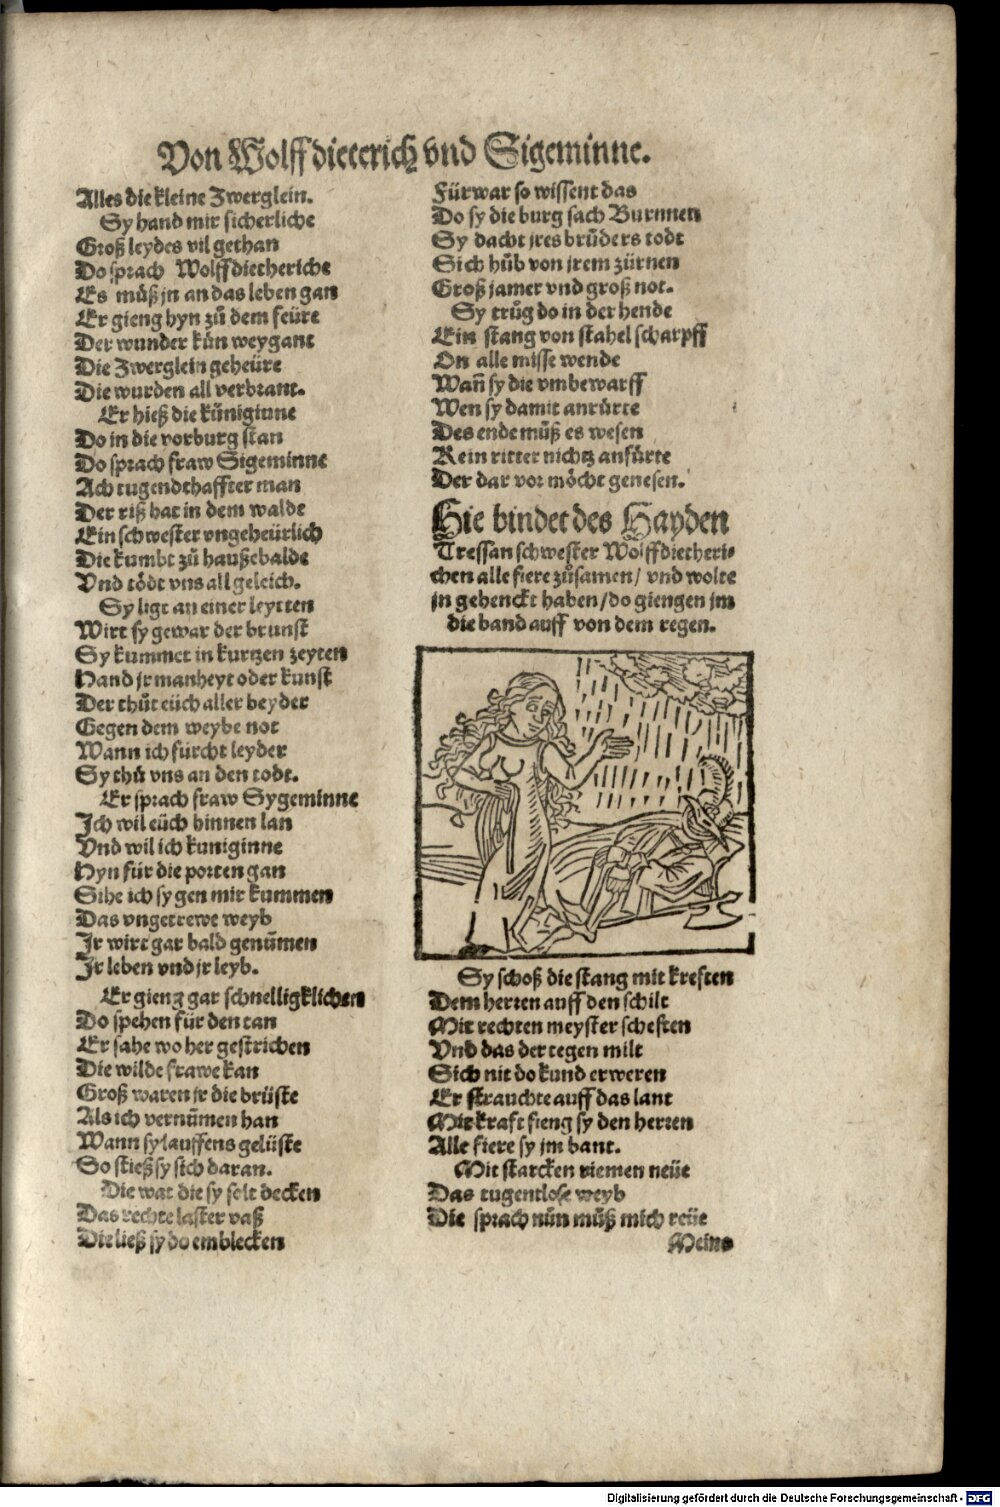 Von Wolffdieterich vnd Sigeminne.
Alles die kleine Zwerglein.
Sy hand mir sicherliche
Groß leydes vil gethan
Do sprach Wolffdietheriche
Es můß jn an das leben gan
Er gieng hyn zů dem feüre
Der wunder kůn weygant
Die Zwerglein geheüre
Die wurden all verbrant.
Er hieß die küniginne
Do in die vorburg stan
Do sprach fraw Sigeminne
Ach tugendthaffter man
Der riß hat in dem walde
Ein schwester vngeheürlich
Die kumbt zů hauße balde
Vnd tödt vns all geleich.
Sy ligt an einer leytten
Wirt sy gewar der brunst
Sy kummet in kurtzen zeyten
Hand jr manheyt oder kunst
Der thůt eüch aller beyder
Gegen dem weybe not
Wann ich fürcht leyder
Sy thů vns an den todt.
Er sprach fraw Sygeminne
Ich wil eüch hinnen lan
Vnd wil ich kuniginne
Hyn für die porten gan
Sihe ich sy gen mir kummen
Das vngetrewe weyb
Ir wirt gar bald genūmen
Ir leben vnd jr leyb.
Er gieng gar schnelligklichen
Do spehen für den tan
Er sahe wo her gestrichen
Die wilde frawe kan
Groß waren jr die brüste
Als ich vernūmen han
Wann sy lauffens gelüste
So stieß sy sich daran.
Die wat die sy solt decken
Das rechte laster vaß
Die ließ sy do emblecken
Fürwar so wissent das
Do sy die burg sach Burnnen
Sy dacht jres brůders todt
Sich hůb von jrem zürnen
Groß jamer vnd groß not.
Sy trůg do in der hende
Ein stang von stahel scharpff
On alle misse wende
Wañ sy die vmbewarff
Wen sy damit anrürte
Des ende můß es wesen
Kein ritter nichtz anfürte
Der dar vor möcht genesen.
Hie bindet des Hayden
Tressan schwester Wolffdietheri-
chen alle fiere zůsamen/ vnd wolte
jn gehenckt haben/ do giengen jm
die band auff von dem regen.
Sy schoß die stang mit kreften
Dem herren auff den schilt
Mit rechten meyster scheften
Vnd das der tegen milt
Sich nit do kund erweren
Er strauchte auff das lant
Mit kraft fieng sy den herren
Alle fiere sy jm bant.
Mit starcken riemen neüe
Das tugentlose weyb
Die sprach nůn můß mich reüe
Meins
Digitalisierung gefördert durch die Deutsche Forschungsgemeinschaft - DFG